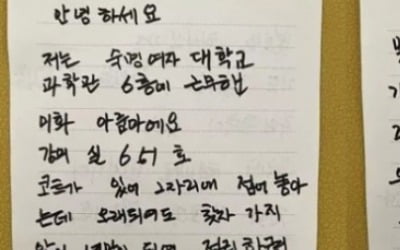 안녕 하세요
저는 숙명여자 대학교
과학관 6층에 근무한
미화 아줌마에요
강의 실 651 호
코트가 있어 그자리에 접어 놓아
는데 오래되여도 찾자 가지